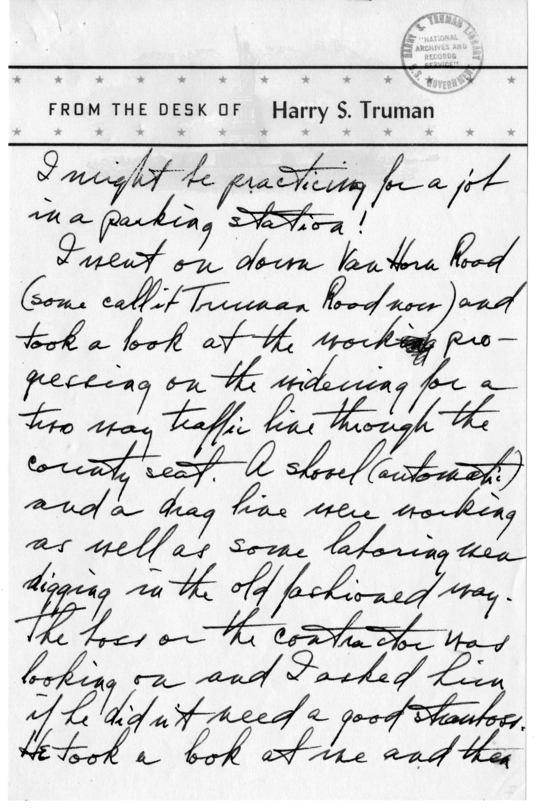 HARRY S. TRUMAN LIBRARY
"NATIONAL
ARCHIVES AND
RECORDS
SERVICE"
U.S. GOVERNMENT
FROM THE DESK OF Harry S. Truman
I might be practicing for a job
in a parking station!
I went on down Van Horn Road
(some call it Truman Road now) and
took a look at the work pro-
gressing on the widening for a
two way traffic line through the
county seat. A shovel (automatic)
and a drag line were working
as well as some laboring men
digging in the old fashioned way.
The boss or the contractor was
looking on and I asked him
if he didn't need a good strawboss.
He took a look at me and then